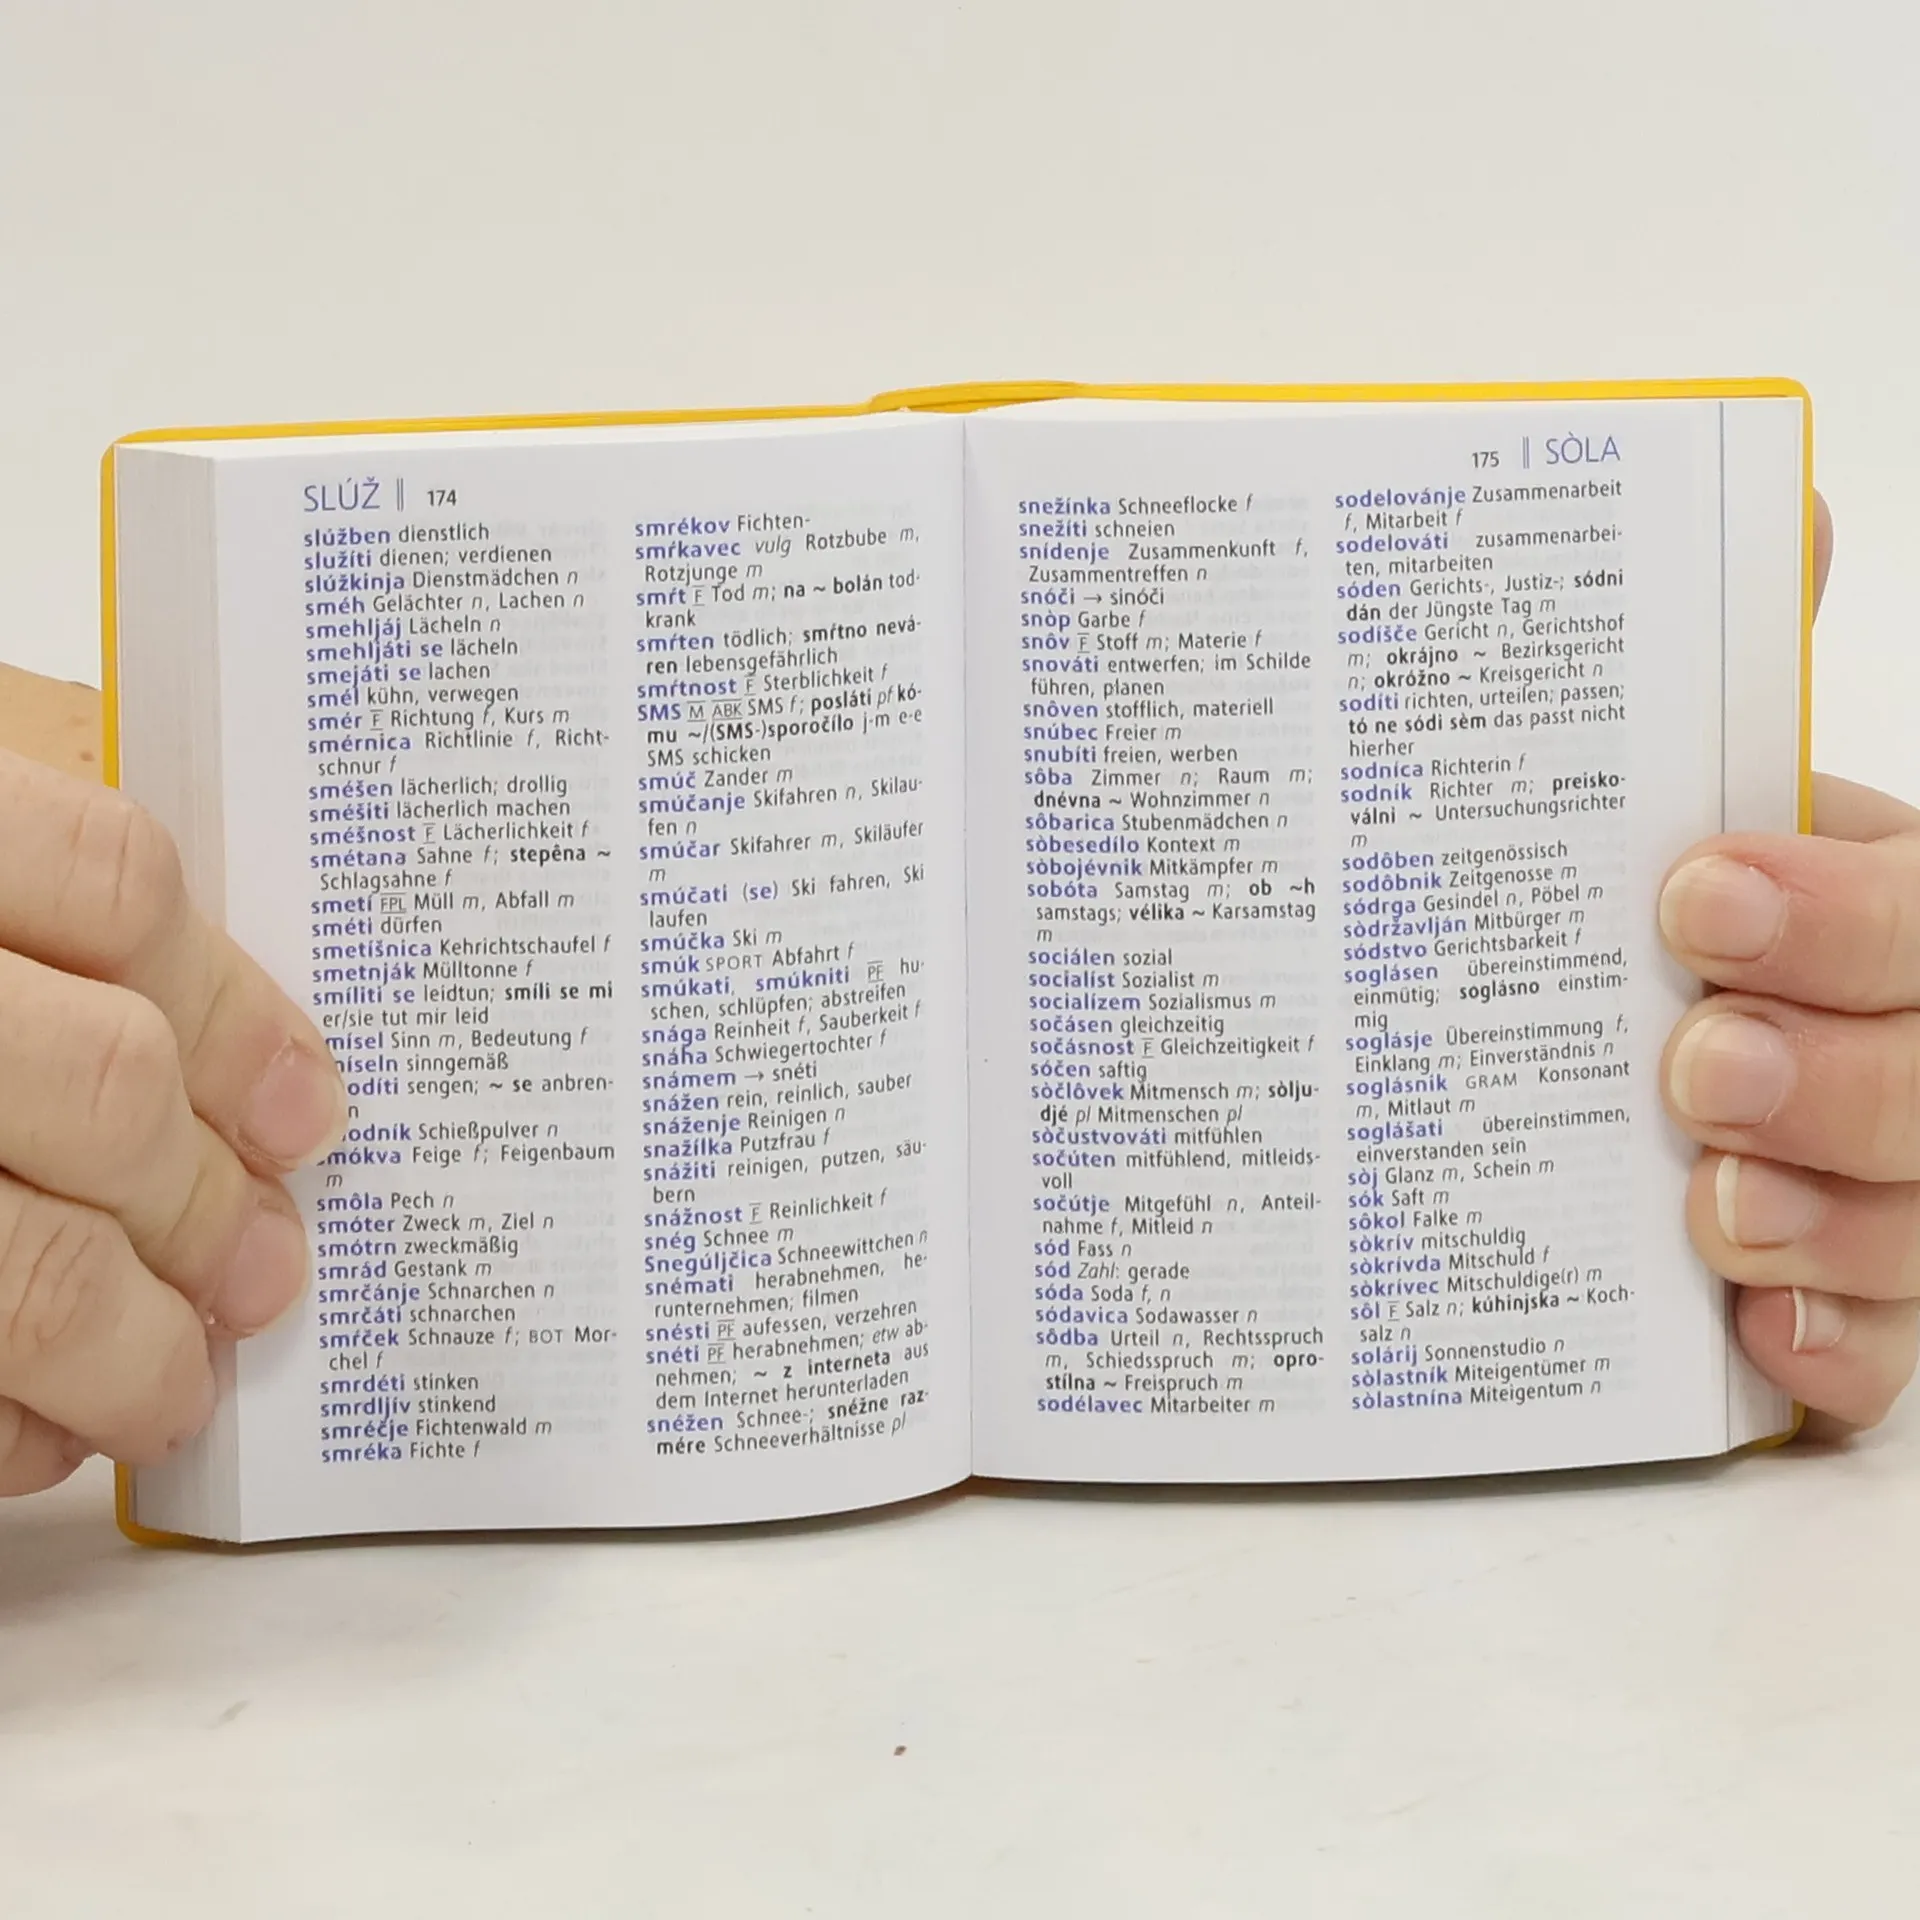 SLÚŽ || 174
slúžben dienstlich
služíti dienen; verdienen
slúžkinja Dienstmädchen n
sméh Gelächter n, Lachen n
smehljáj Lächeln n
smehljáti se lächeln
smejáti se lachen
smél kühn, verwegen
smér F Richtung f, Kurs m
smérnica Richtlinie f, Richt-
schnur f
sméšen lächerlich; drollig
sméšiti lächerlich machen
sméšnost F Lächerlichkeit f
smétana Sahne f; stepêna ~
Schlagsahne f
smetí FPL Müll m, Abfall m
sméti dürfen
smetíšnica Kehrichtschaufel f
smetnják Mülltonne f
smíliti se leidtun; smíli se mi
er/sie tut mir leid
mísel Sinn m, Bedeutung f
míseln sinngemäß
odíti sengen; ~ se anbren-
n
odník Schießpulver n
mókva Feige f; Feigenbaum
m
smôla Pech n
smóter Zweck m, Ziel n
smótrn zweckmäßig
smrád Gestank m
smrčánje Schnarchen n
smrčáti schnarchen
smŕček Schnauze f; BOT Mor-
chel f
smrdéti stinken
smrdljív stinkend
smréčje Fichtenwald m
smréka Fichte f
smrékov Fichten-
smŕkavec vulg Rotzbube m,
Rotzjunge m
smŕt F Tod m; na ~ bolán tod-
krank
smŕten tödlich; smŕtno nevá-
ren lebensgefährlich
smŕtnost F Sterblichkeit f
SMS M ABK SMS f; posláti pf kó-
mu ~/(SMS-)sporočílo j-m e-e
SMS schicken
smúč Zander m
smúčanje Skifahren n, Skilau-
fen n
smúčar Skifahrer m, Skiläufer
m
smúčati (se) Ski fahren, Ski
laufen
smúčka Ski m
smúk SPORT Abfahrt f
smúkati, smúkniti PF hu-
schen, schlüpfen; abstreifen
snága Reinheit f, Sauberkeit f
snáha Schwiegertochter f
snámem → snéti
snážen rein, reinlich, sauber
snáženje Reinigen n
snažílka Putzfrau f
snážiti reinigen, putzen, säu-
bern
snážnost F Reinlichkeit f
snég Schnee m
Snegúljčica Schneewittchen n
snémati herabnehmen, he-
runternehmen; filmen
snésti PF aufessen, verzehren
snéti PF herabnehmen; etw ab-
nehmen; ~ z interneta aus
dem Internet herunterladen
snéžen Schnee-; snéžne raz-
mére Schneeverhältnisse pl
175 || SÒLA
snežínka Schneeflocke f
snežíti schneien
snídenje Zusammenkunft f,
Zusammentreffen n
snóči → sinóči
snòp Garbe f
snôv F Stoff m; Materie f
snováti entwerfen; im Schilde
führen, planen
snôven stofflich, materiell
snúbec Freier m
snubíti freien, werben
sôba Zimmer n; Raum m;
dnévna ~ Wohnzimmer n
sôbarica Stubenmädchen n
sòbesedílo Kontext m
sòbojévnik Mitkämpfer m
sobóta Samstag m; ob ~h
samstags; vélika ~ Karsamstag
m
sociálen sozial
socialíst Sozialist m
socialízem Sozialismus m
sočásen gleichzeitig
sočásnost F Gleichzeitigkeit f
sóčen saftig
sòčlôvek Mitmensch m; sòlju-
djé pl Mitmenschen pl
sòčustvováti mitfühlen
sočúten mitfühlend, mitleids-
voll
sočútje Mitgefühl n, Anteil-
nahme f, Mitleid n
sód Fass n
sód Zahl: gerade
sóda Soda f, n
sódavica Sodawasser n
sôdba Urteil n, Rechtsspruch
m, Schiedsspruch m; opro-
stílna ~ Freispruch m
sodélavec Mitarbeiter m
sodelovánje Zusammenarbeit
f, Mitarbeit f
sodelováti zusammenarbei-
ten, mitarbeiten
sóden Gerichts-, Justiz-; sódni
dán der Jüngste Tag m
sodíšče Gericht n, Gerichtshof
m; okrájno ~ Bezirksgericht
n; okróžno ~ Kreisgericht n
sodíti richten, urteilen; passen;
tó ne sódi sèm das passt nicht
hierher
sodníca Richterin f
sodník Richter m; preisko-
válni ~ Untersuchungsrichter
m
sodôben zeitgenössisch
sodôbnik Zeitgenosse m
sódrga Gesindel n, Pöbel m
sòdržavlján Mitbürger m
sódstvo Gerichtsbarkeit f
soglásen übereinstimmend,
einmütig; soglásno einstim-
mig
soglásje Übereinstimmung f,
Einklang m; Einverständnis n
soglásnik GRAM Konsonant
m, Mitlaut m
soglášati übereinstimmen,
einverstanden sein
sòj Glanz m, Schein m
sók Saft m
sôkol Falke m
sòkrív mitschuldig
sòkrívda Mitschuld f
sòkrívec Mitschuldige(r) m
sôl F Salz n; kúhinjska ~ Koch-
salz n
solárij Sonnenstudio n
sòlastník Miteigentümer m
sòlastnína Miteigentum n